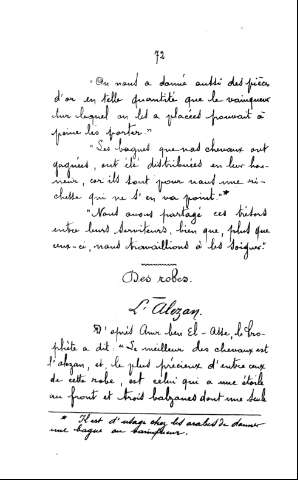 72
"On nous a donné aussi des pièces
d'or en telle quantité que le vainqueur
sur lequel on les a placées pouvait à
peine les porter."
"Les bagues que nos chevaux ont
gagnées, ont été distribuées en leur hon-
neur, car ils sont pour nous une ri-
chesse qui ne s'en va point."*
"Nous avons partagé ces trésors
entre leurs serviteurs, bien que, plus que
ceux-ci, nous travaillions à les soigner."
Des robes.
L'Alezan.
D'après Amr ben El-Asse, le Pro-
phète a dit : "Le meilleur des chevaux est
l'alezan, et, le plus précieux d'entre ceux
de cette robe, est celui qui a une étoile
au front et trois balzanes dont une seule
* Il est d'usage chez les arabes de donner
une bague au vainqueur.